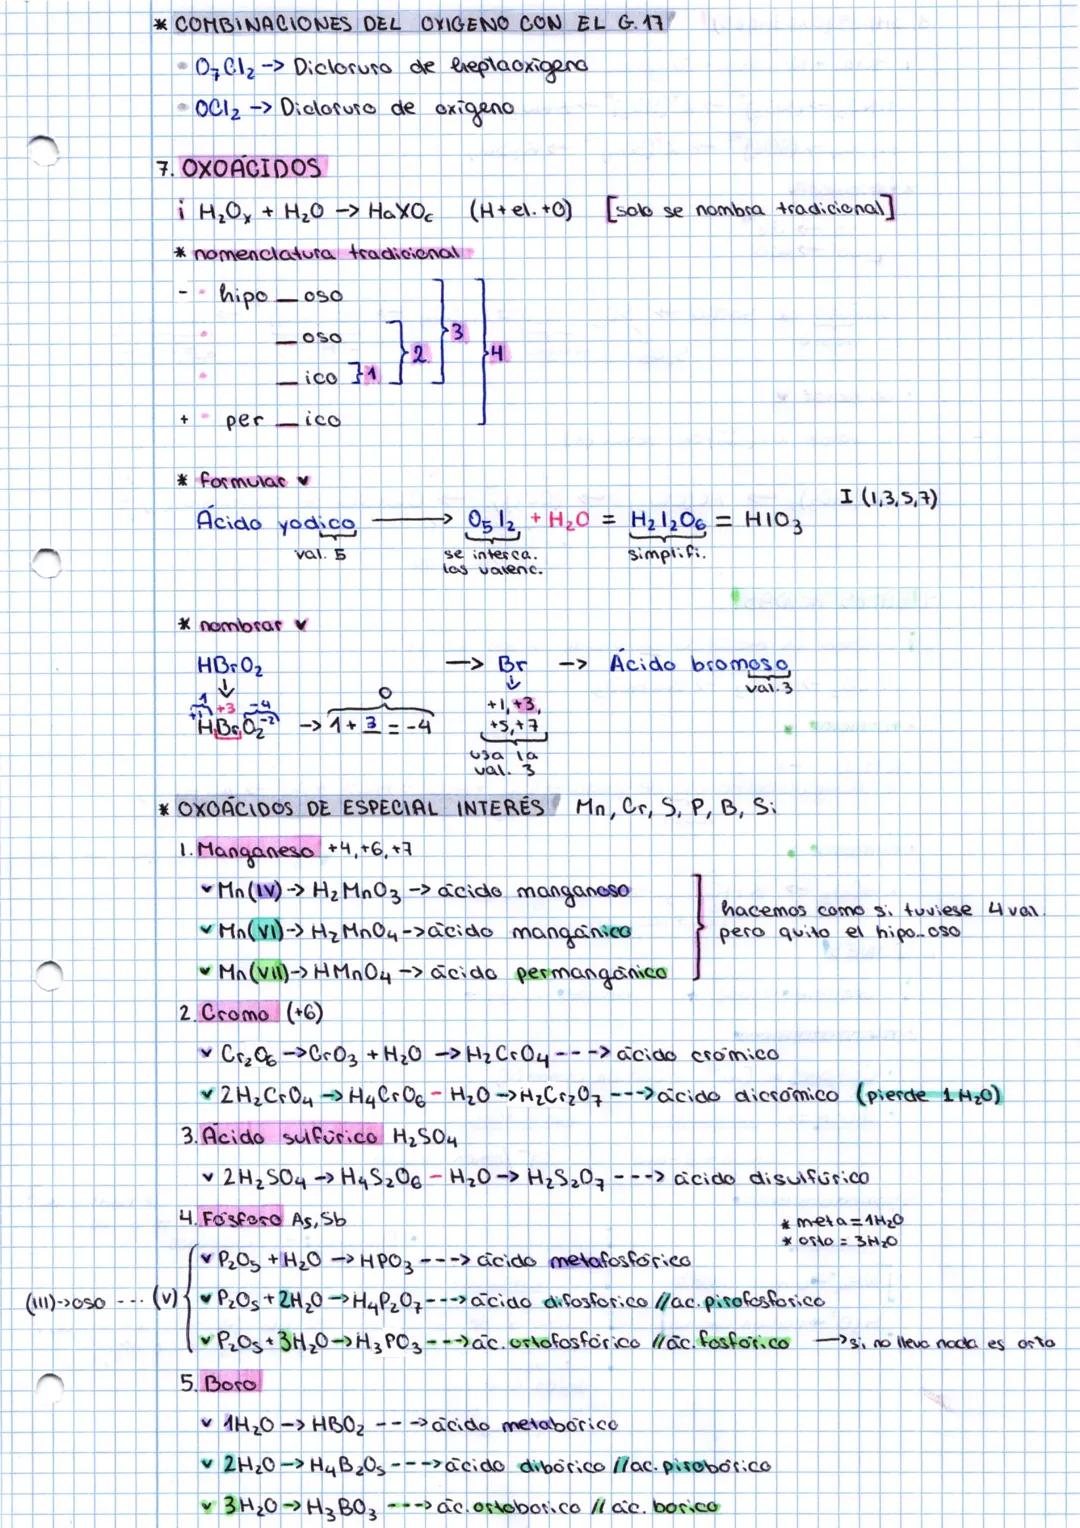 * COMBINACIONES DEL OXIGENO CON EL G.17
• O₇Cl₂ -> Dicloruro de heptaoxigeno
• OCl₂ -> Dicloruro de oxigeno
7. OXOÁCIDOS
¡ H₂Oₓ + H₂O -> HaXOc (H + el. + O) [solo se nombra tradicional]
* nomenclatura tradicional
- • hipo _ oso
• _ oso
• _ ico } 1 2 3 4
+ • per _ ico
* formular v
I (1,3,5,7)
Ácido yodico -> O₅I₂ + H₂O = H₂I₂O₆ = HIO₃
val. 5 se interca. las valenc. simplifi.
* nombrar v
HBrO₂ -> Br -> Ácido bromoso
val. 3
1 +3 -4
+1 HBrO₂ -2 -> 1 + 3 = -4 0
+1, +3, +5, +7
usa la val. 3
* OXOÁCIDOS DE ESPECIAL INTERÉS Mn, Cr, S, P, B, Si
1. Manganeso +4, +6, +7
v Mn(IV) -> H₂MnO₃ -> ácido manganoso
v Mn(VI) -> H₂MnO₄ -> ácido mangánico
v Mn(VII) -> HMnO₄ -> ácido permangánico
hacemos como si tuviese 4 val.
pero quito el hipo..oso
2. Cromo (+6)
v Cr₂O₆ -> CrO₃ + H₂O -> H₂CrO₄ ---> ácido crómico
v 2H₂CrO₄ -> H₄CrO₆ - H₂O -> H₂Cr₂O₇ ---> ácido dicrómico (pierde 1 H₂O)
3. Ácido sulfúrico H₂SO₄
v 2H₂SO₄ -> H₄S₂O₆ - H₂O -> H₂S₂O₇ ---> ácido disulfúrico
4. Fósforo As, Sb
* meta = 1H₂O
* orto = 3H₂O
(III)->oso --- (V)
v P₂O₅ + H₂O -> HPO₃ ---> ácido metafosfórico
v P₂O₅ + 2H₂O -> H₄P₂O₇ ---> ácido difosforico // ac. pirofosforico
v P₂O₅ + 3H₂O -> H₃PO₃ ---> ác. ortofosfórico // ác. fosfórico -> si no lleva nada es orto
5. Boro
v 1H₂O -> HBO₂ ---> ácido metabórico
v 2H₂O -> H₄B₂O₅ ---> ácido dibórico // ac. pirobórico
v 3H₂O -> H₃BO₃ ---> ác. ortoborico // ác. borico